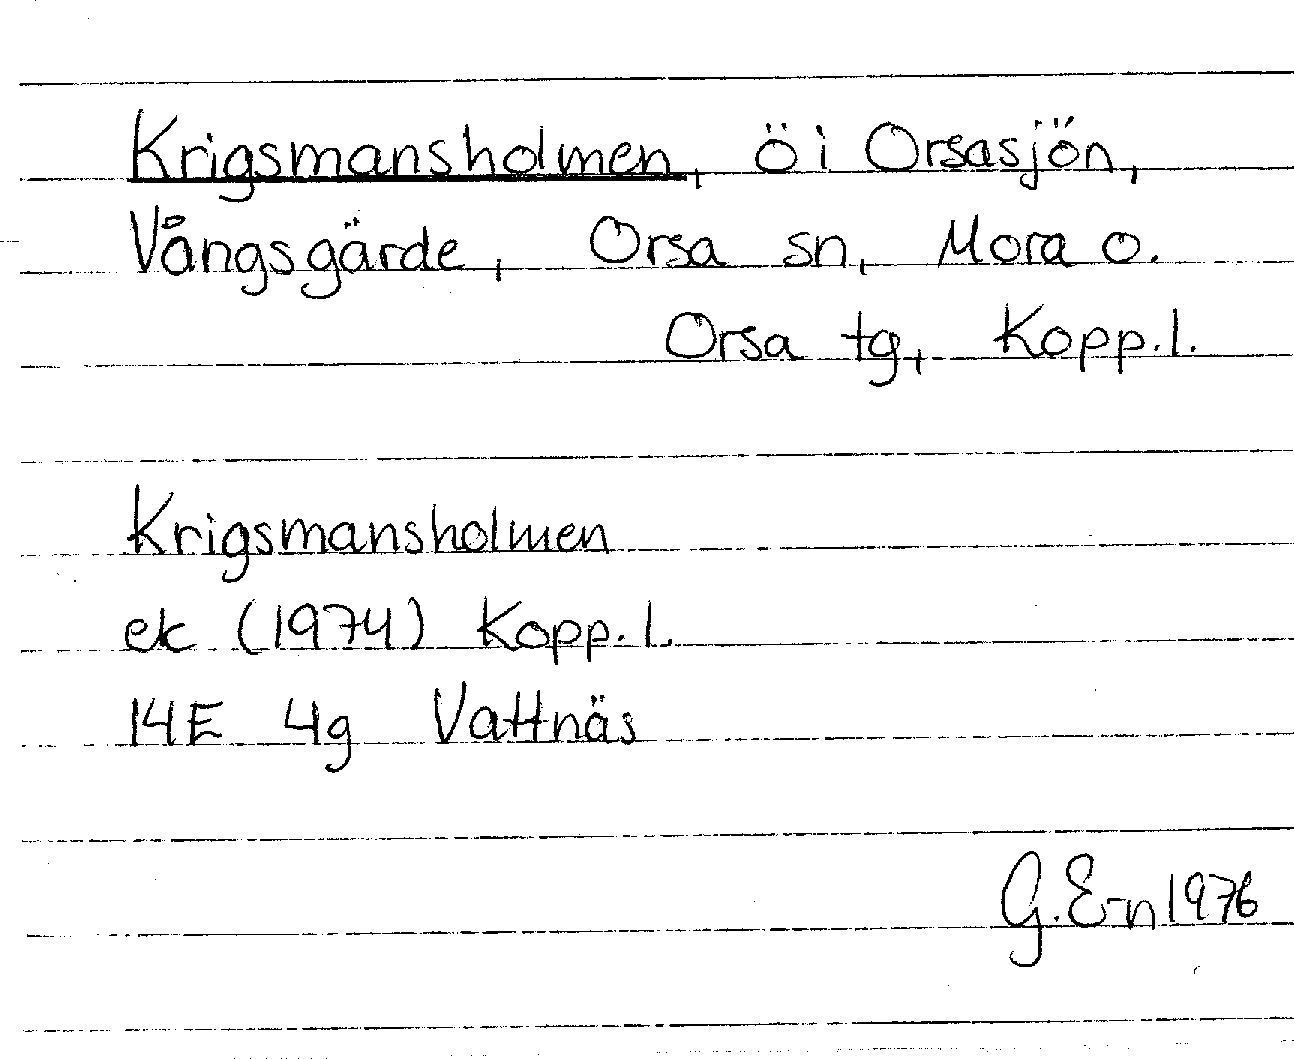 Krigsmansholmen, ö i Orsasjön,
Vångsgärde, Orsa sn, Mora o.
Orsa tg, Kopp.l.
Krigsmansholmen
ek (1974) Kopp.l.
14E 4g Vattnäs
G.E-n 1976